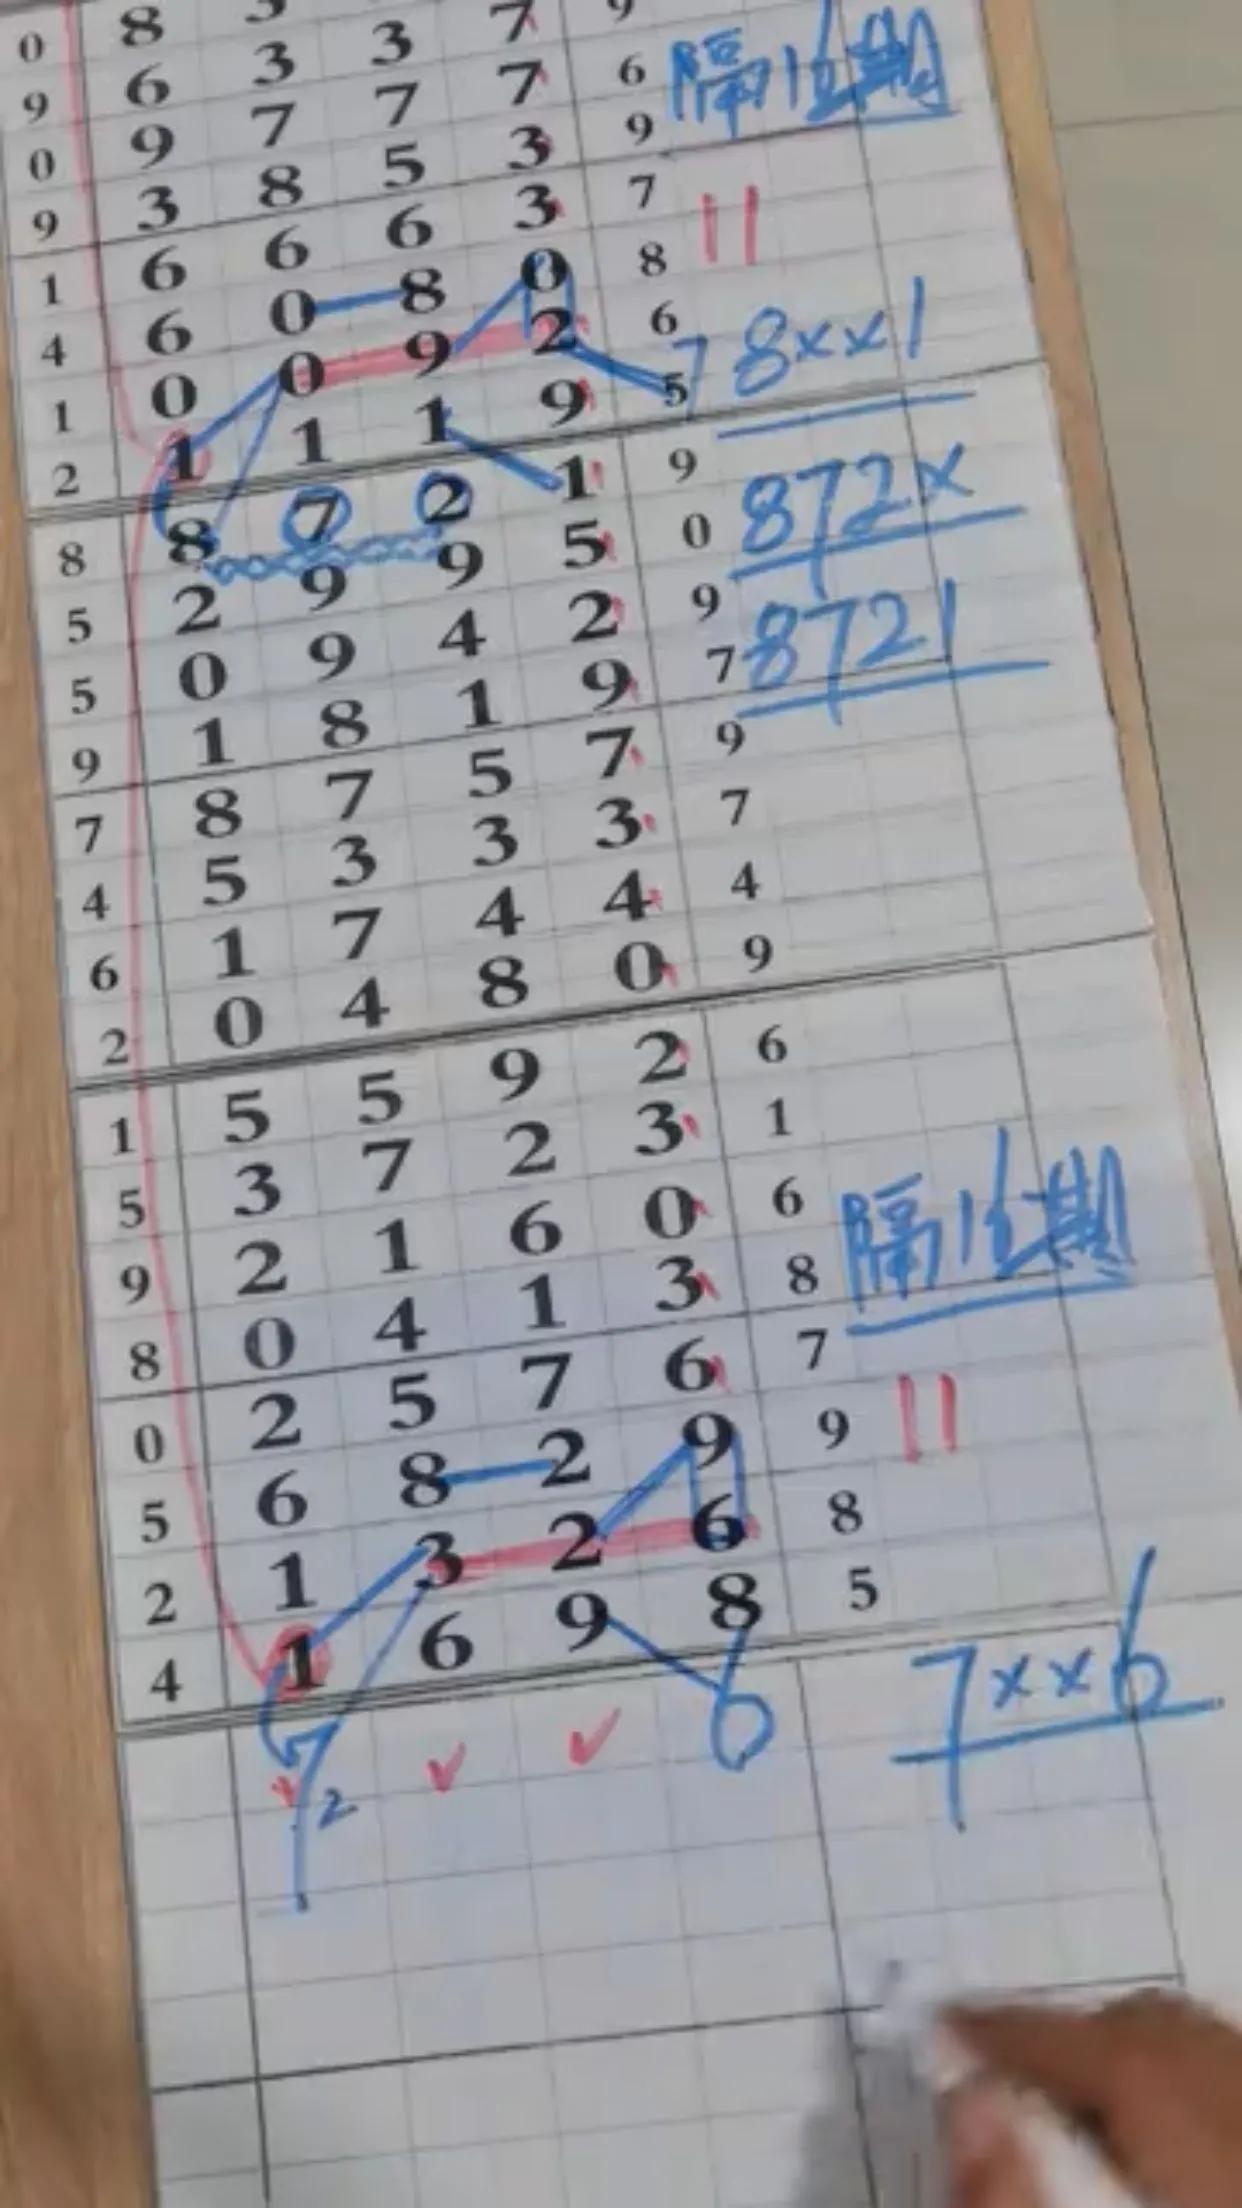 0 8 3 7 9
9 6 3 3 7 6 隔16期
0 9 7 7 3 9
9 3 8 5 3 7
1 6 6 6 0 8
4 6 0 8 2 6 8xx1
1 0 0 9 9 5
2 1 1 1 1 9
8 8 7 2 5 0 872x
5 2 9 9 2 9 8721
5 0 9 4 9 7
9 1 8 1 7 9
7 8 7 5 3 7
4 5 3 3 4 4
6 1 7 4 0 9
2 0 4 8
1 5 5 9 2 6
5 3 7 2 3 1
9 2 1 6 0 6 隔16期
8 0 4 1 3 8
0 2 5 7 6 7
5 6 8 2 9 9
2 1 3 2 6 8
4 1 6 9 8 5
7 6 7xx6
2